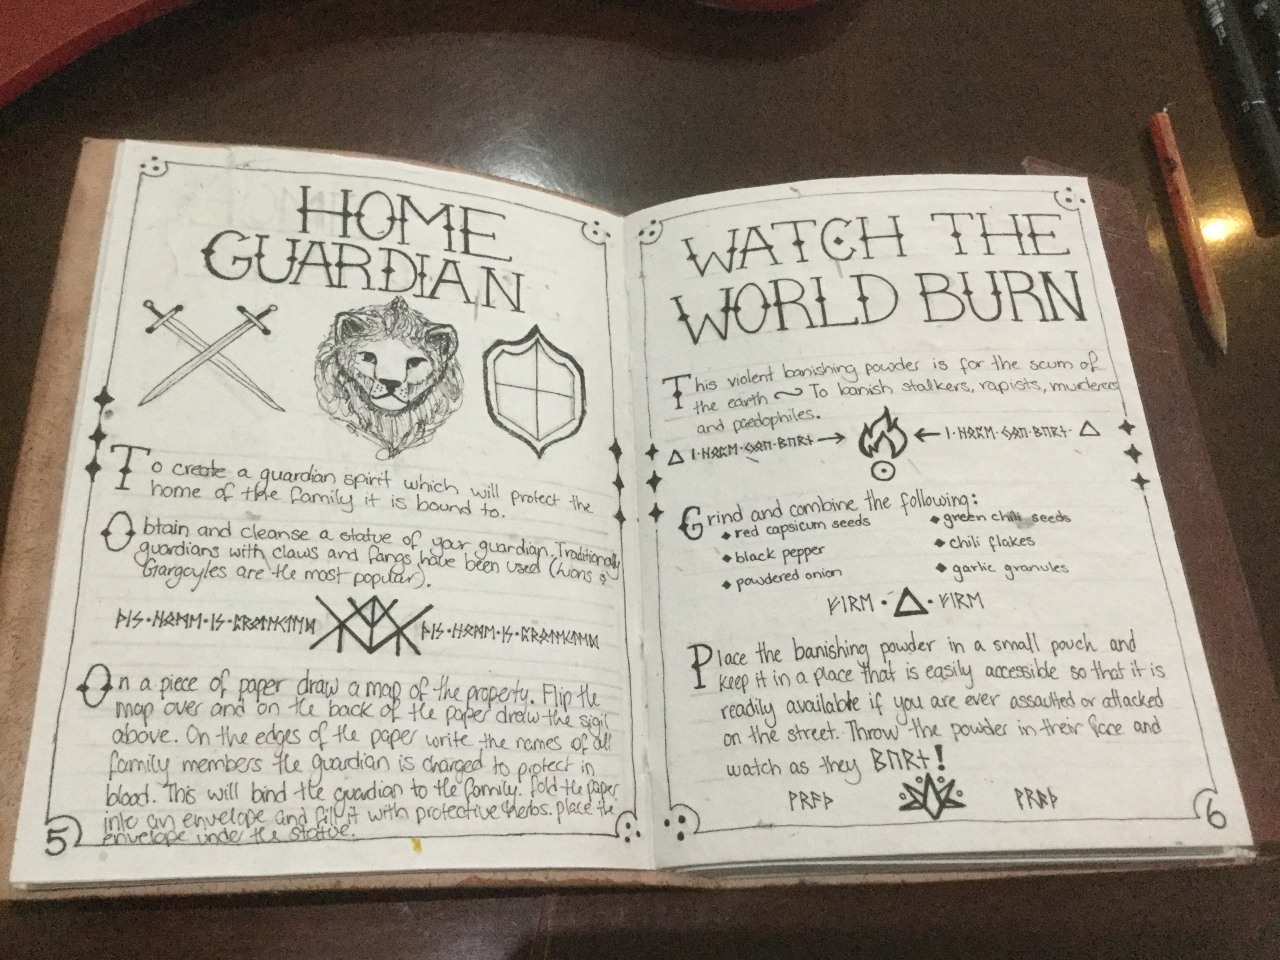 HOME
GUARDIAN
To create a guardian spirit which will protect the
home of the family it is bound to.
Obtain and cleanse a statue of your guardian. Traditionally
guardians with claws and fangs have been used (Lions &
Gargoyles are the most popular).
ᚦᛁᛊ•ᚺᛟᛗᛖ•ᛁᛊ•ᛈᚱᛟᛏᛖᚲᛏᛖᛞ
ᚦᛁᛊ•ᚺᛟᛗᛖ•ᛁᛊ•ᛈᚱᛟᛏᛖᚲᛏᛖᛞ
On a piece of paper draw a map of the property. Flip the
map over and on the back of the paper draw the sigil
above. On the edges of the paper write the names of all
family members the guardian is charged to protect in
blood. This will bind the guardian to the family. Fold the paper
into an envelope and fill it with protective herbs. place the
envelope under the statue.
5
WATCH THE
WORLD BURN
This violent banishing powder is for the scum of
the earth ~ To banish stalkers, rapists, murderers
and paedophiles.
Grind and combine the following:
red capsicum seeds
black pepper
powdered onion
green chilli seeds
chili flakes
garlic granules
ᚠᛁᚱᛖ • △ • ᚠᛁᚱᛖ
Place the banishing powder in a small pouch and
keep it in a place that is easily accessible so that it is
readily available if you are ever assaulted or attacked
on the street. Throw the powder in their face and
watch as they ᛒᚢᚱᚾ!
6